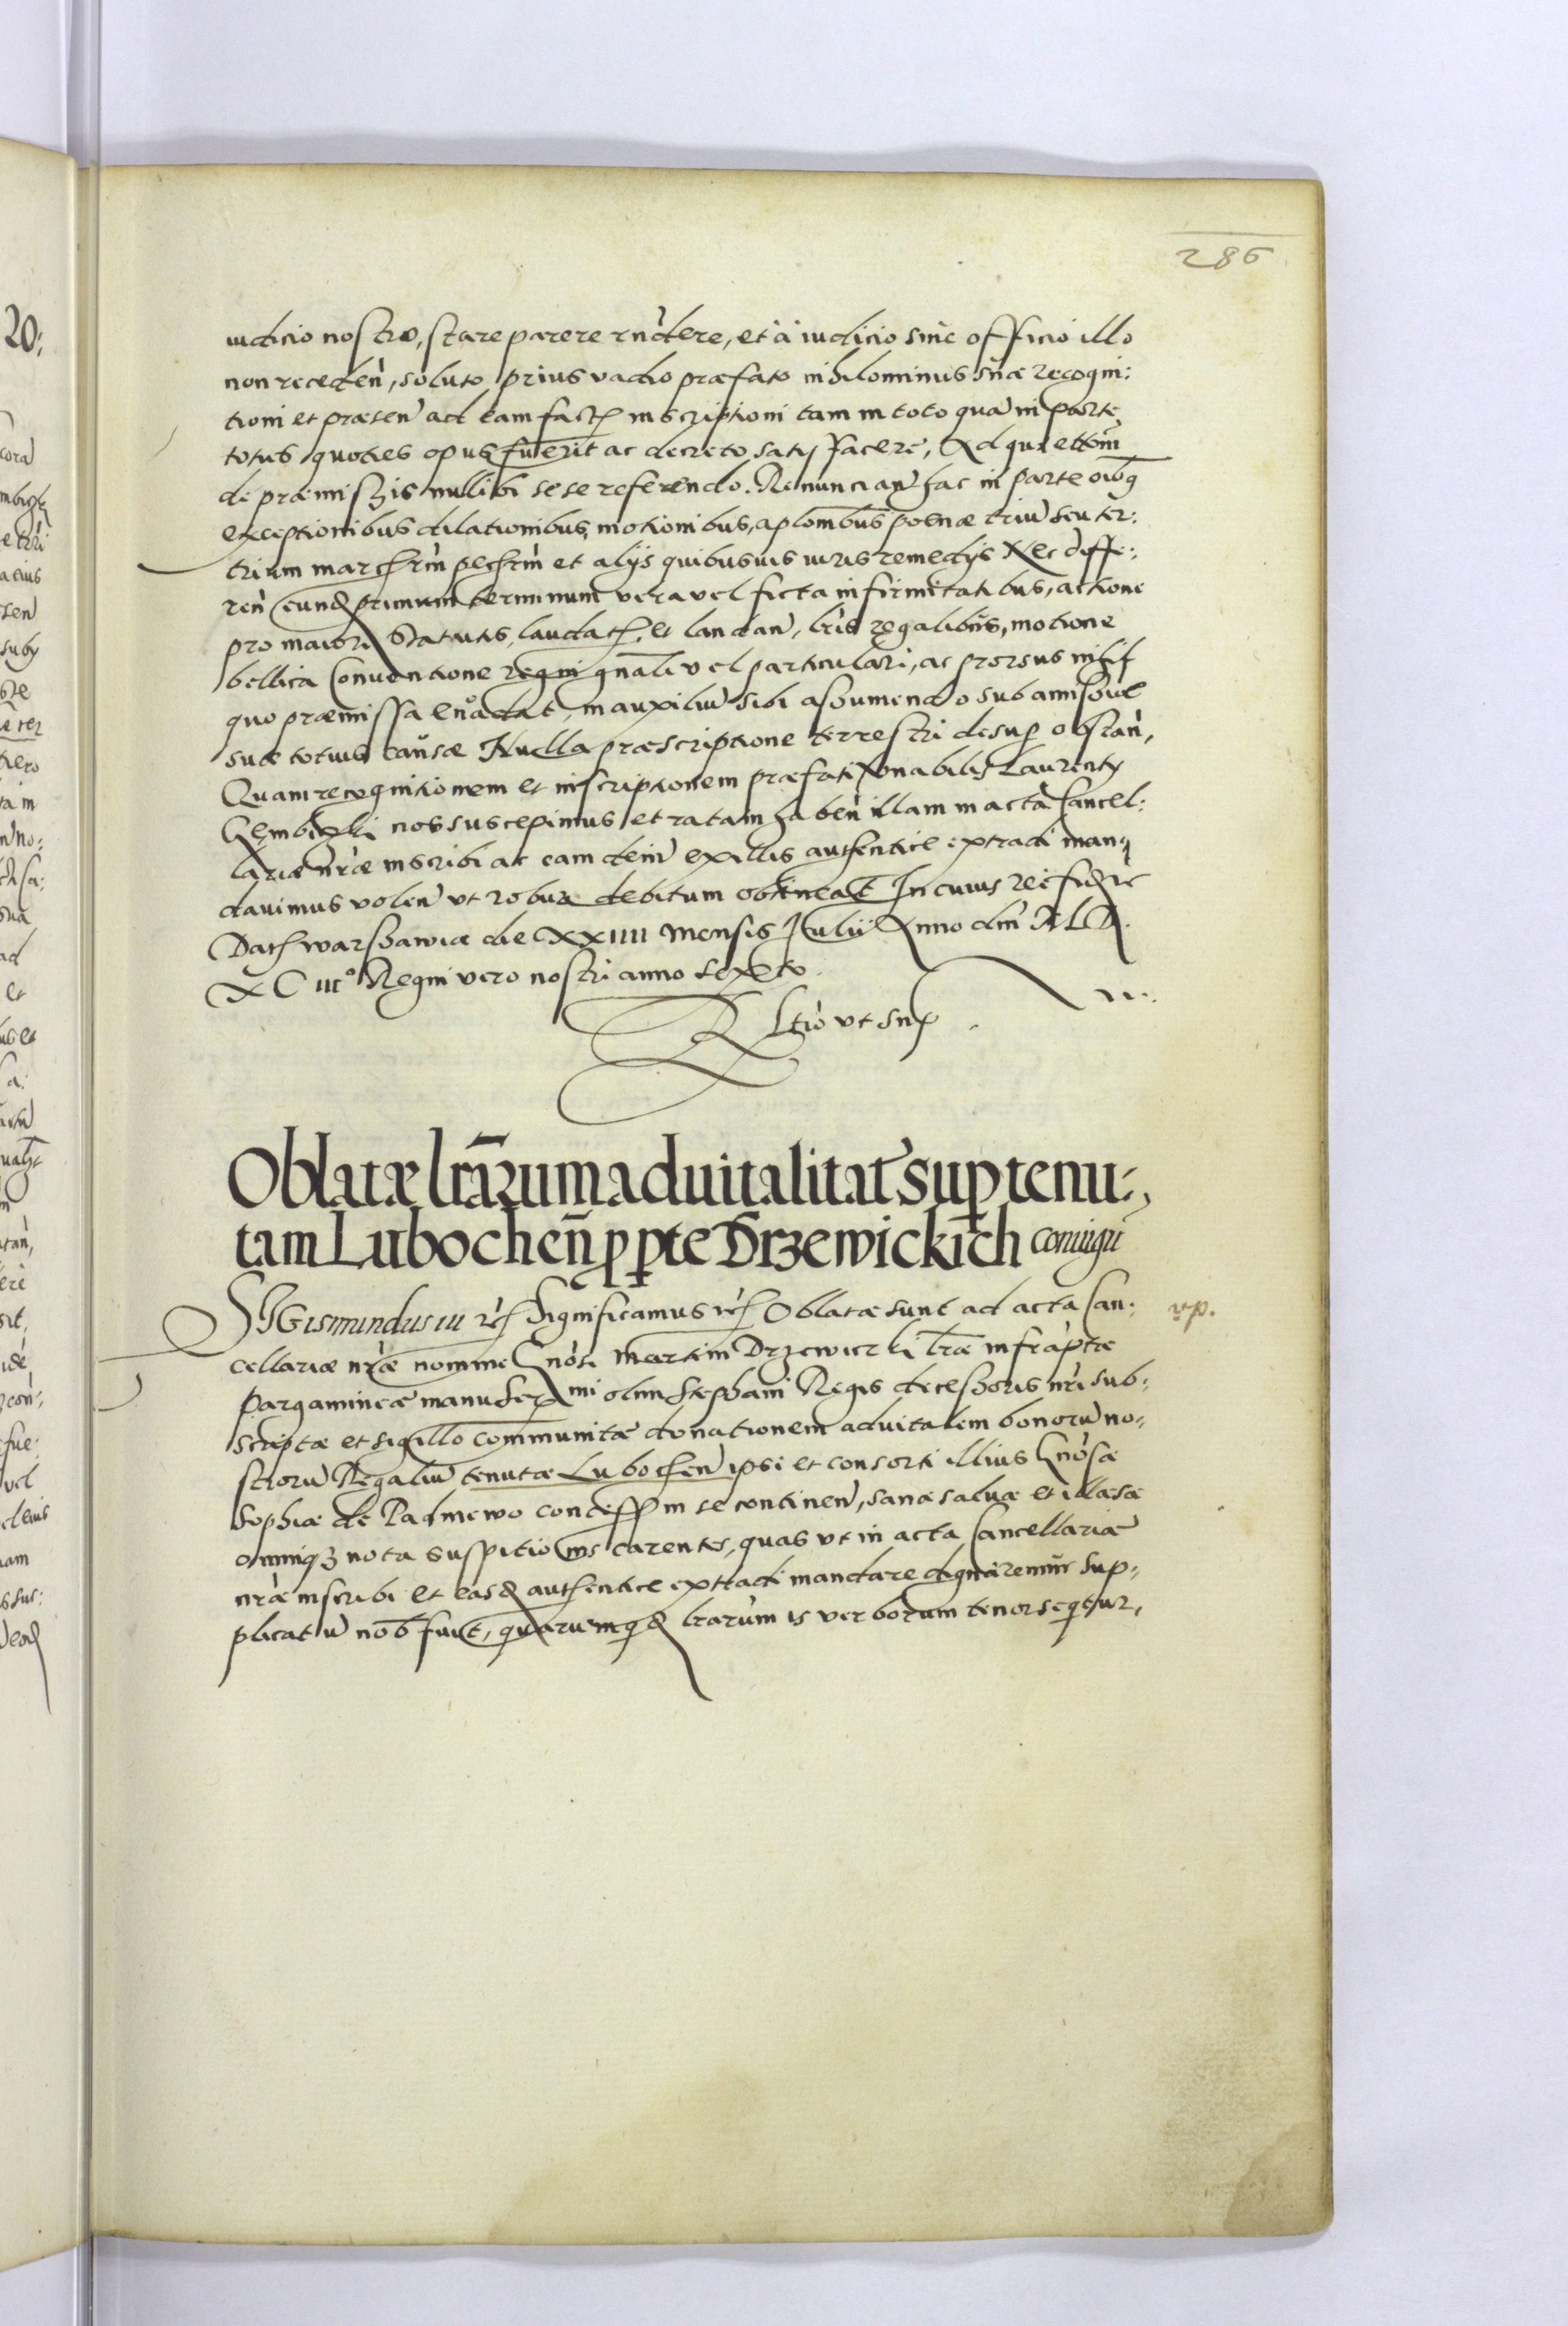 286
iudicio nostro, stare parere rńdere, et à iudicio siue officio illo
non receden̄, soluto prius vadio præfato nihilominus sūæ recogni:
tioni et præsen̄ ad eam fact, inscriptioni tam in toto quā in parte
totius quoties opus fuerit ac decreto, satis facere, Ad quæ ettām
de præmissis nullibi sese referendo. Renuncian̄ hac in parte oībq
exceptionibus dilationibus, motionibus, aplom̄bus poenæ triū seu ter:
trium march̄rm pech̄rm et alijs quibusuis iuris remedijs Nec diffe:
ren̄ eund primum terminum vera vel ficta infirmitatibus, actione
pro maiori Statutis, laudat, et landan̄, lr̄is regalibūs, motione
bellica Conuentione regni gnali vel particulari, ac prorsus nihil
quo præmissa euadat, in auxiliū sibi assumendo sub amissōne
suæ totius cāūsæ Nulla præscriptione terrestri desup obstan̄,
Quam recognitionem et inscriptionem præfati honabilis Laurentij
Gembiczki nos suscepimus et ratam haben̄ illam in acta Cancel:
lariæ nr̄æ inscribi ac eam dem̄ ex illis authentice extradi man:
dauimus volen̄ vt robur debitum obtineat In cuius rei fidē rc
Dat Warshawiæ die XXIIII Mensis Iulii Anno dm̄ M. D.
XCIII° Regni vero nostri anno Sexto.
Rltiò vt sup
Oblatæ lrārum aduitalitat sup tenu:,
tam Lubochen̄ p pte Drzewickich coniugū
SIGismundus III rc Significamus rc Oblatæ sunt ad acta Can: rp.
cellariæ nr̄æ nomine Gnōsi Martini Drzewiczki lræ infrāptæ
pargamineæ manu Ser mi olim Stephani Regis decessoris nr̄i sub:
scriptæ et sigillo communitæ donationem aduitalem bonorū no:
strorū Regaliū tenutæ Lubochen̄ ipsi et consorti illius Gnōsæ
Sophiæ de Padniewo concess in se continen̄, sanæ saluæ et illæsæ
omniq3 nota suspitionis carentes, quas vt in acta Cancellariæ
nr̄æ inscribi et easd authentice extradi mandare dignaremūr sup:
plicatū nob̄ fuit, quarumqd lrarum is verborum tenor sequitur,